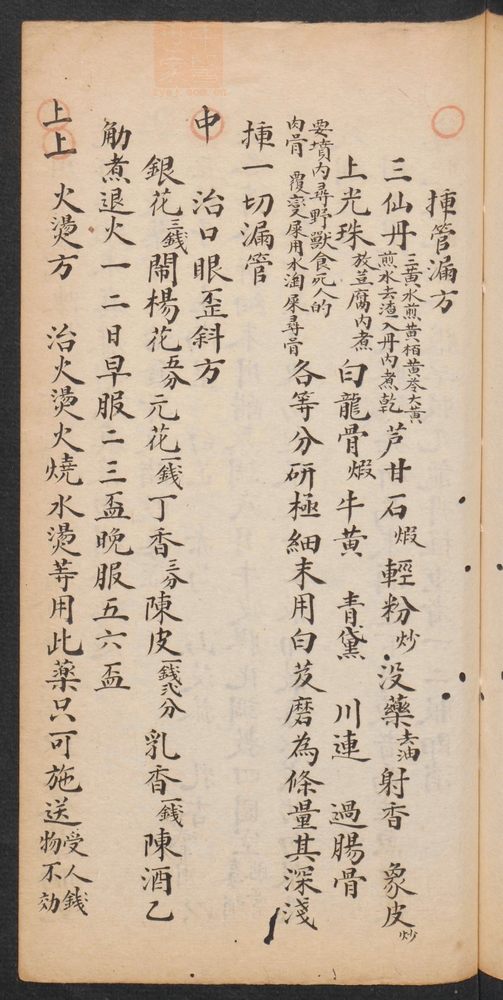 揷管漏方
三仙丹三黃水煎黃栢黃苓大黃煎水去渣入丹內煮乾芦甘石煆輕粉炒没藥去油射香象皮炒
上光珠放荳腐內煮白龍骨煆牛黃青黛川連過腸骨
要墳內尋野獸食死人的肉骨覆變屎用水淘屎尋骨各等分研極細末用白芨磨為條量其深淺
揷一切漏管
中治口眼歪斜方
銀花三錢鬧楊花五分元花一錢丁香三分陳皮一錢弍分乳香一錢陳酒乙
觔煮退火一二日早服二三盃晚服五六盃
上上火燙方治火燙火燒水燙等用此藥只可施送受人錢物不効